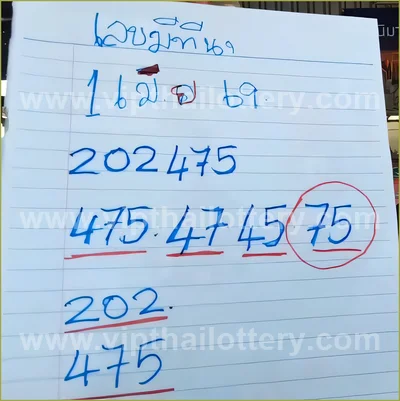 เลขมีที่นา
1 เมีย 69.
202475
475. 47 45 75
202.
475
www.vipthailottery.com
www.vipthailottery.com
www.vipthailottery.com